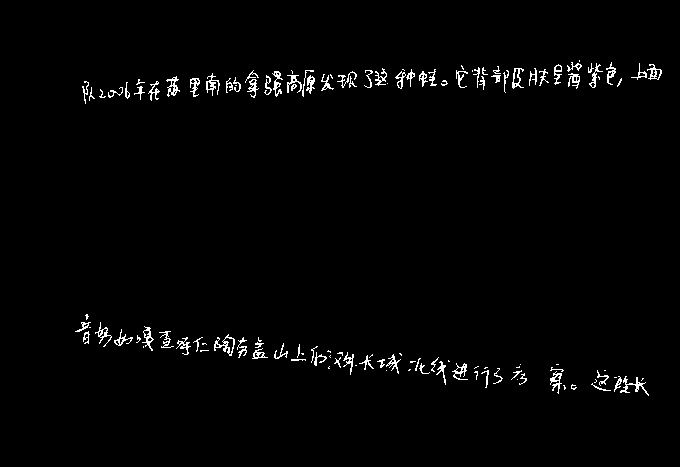 队2006年在苏里南的拿骚高原发现了这种蛙。它背部皮肤呈酱紫色,上面
音努如嘎查呼仁陶勒盖山上的汉长城北线进行了考察。这段长